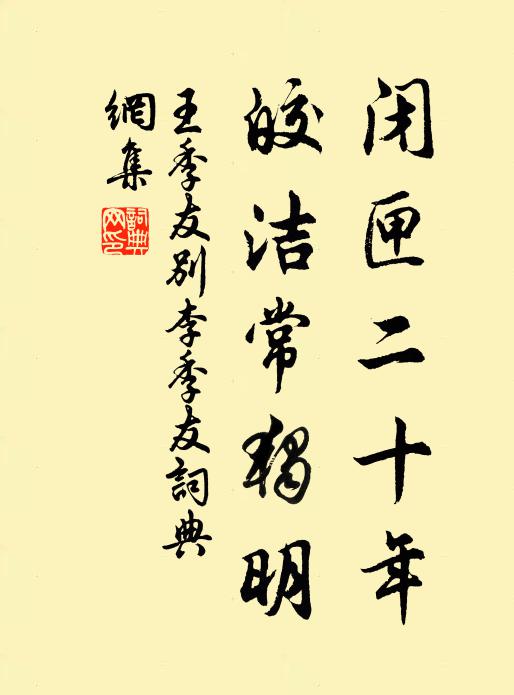 闭匣二十年
皎洁常独明
王季友别李季友詞典
網集
詞典
网印